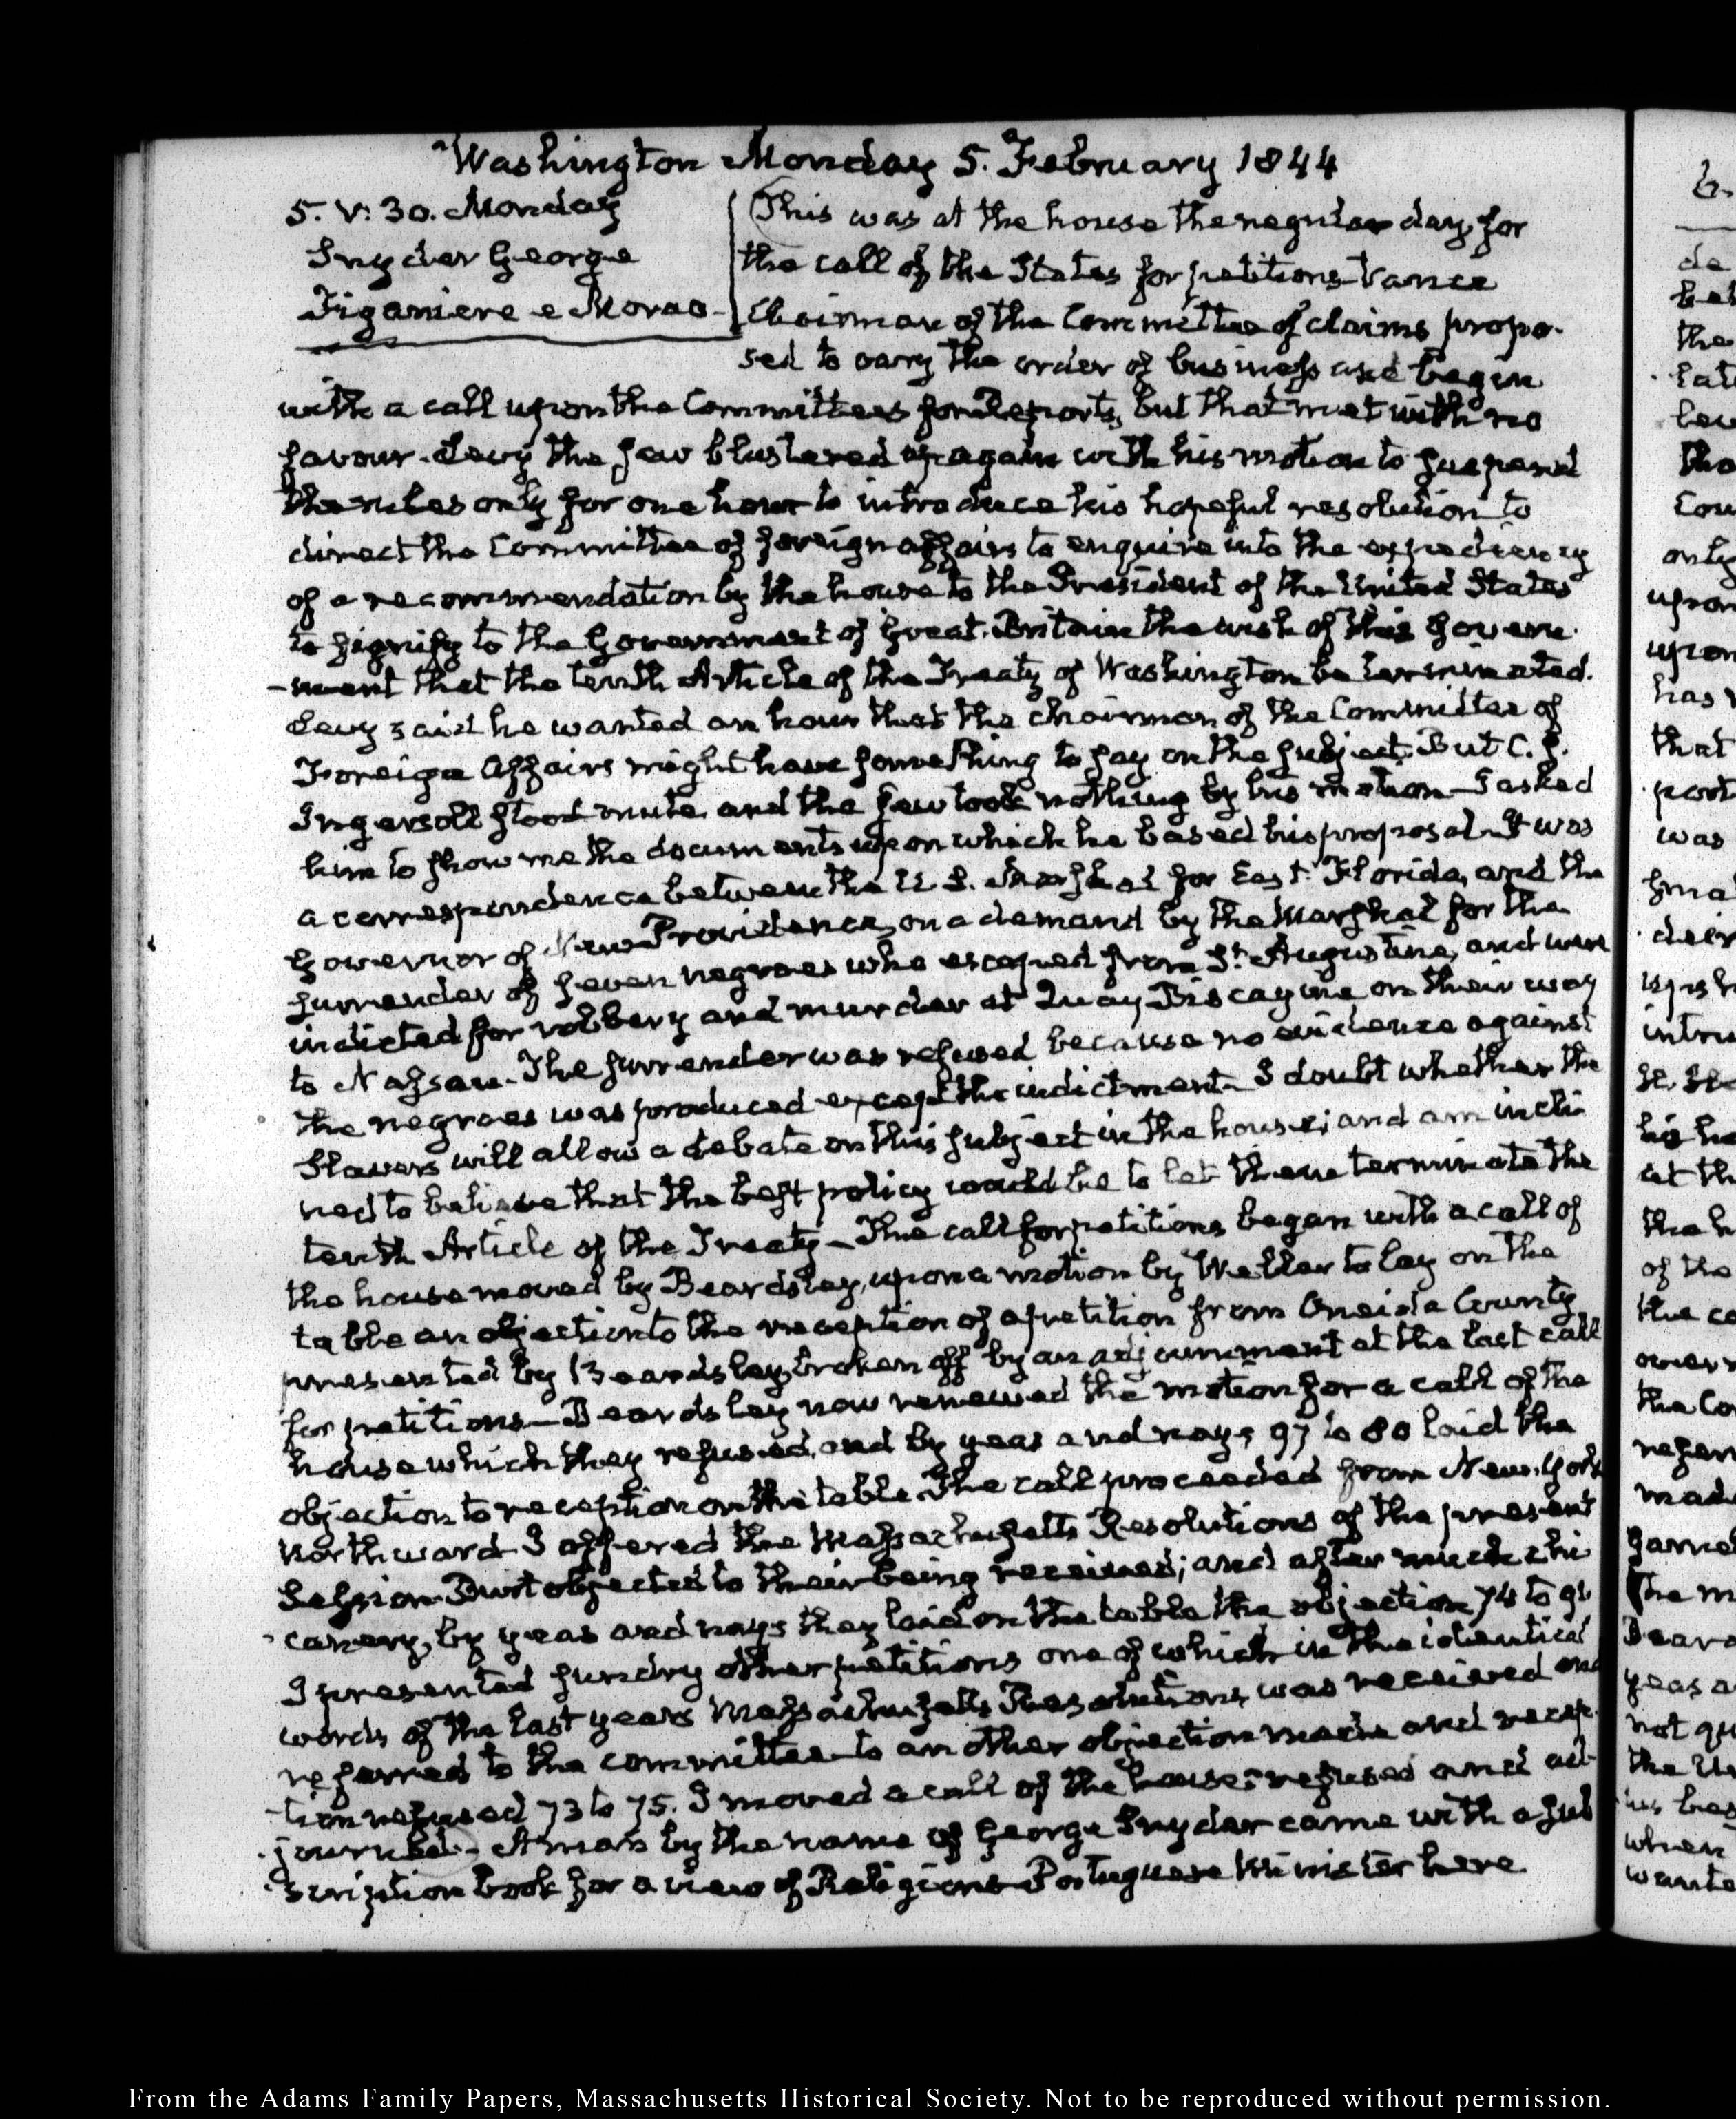 Washington Monday 5. February 1844
5. V: 30. Monday
Snyder George
Figaniere e Morao
This was at the house the regular day, for
the call of the States for petitions Vance
Chairman of the Committee of claims propo-
sed to vary the order of business and begin
with a call upon the Committees for Reports, but that met with no
favour. Levy the Jew blustered again with his motion to suspend
the rules only for one hour to introduce his hopeful resolution to
direct the Committee of foreign affairs to enquire into the expediency
of a recommendation by the house to the President of the United States
to signify to the Government of Great-Britain the wish of this Govern-
-ment that the tenth Article of the Treaty of Washington be terminated.
Levy said he wanted an hour that the chairman of the Committee of
Foreign Affairs might have something to say on the subject. But C. J.
Ingersoll stood mute, and the Jew took nothing by his motion—I asked
him to show me the documents upon which he based his proposal—It was
a correspondence between the U. S. Marshal for East Florida, and the
Governor of New Providence, on a demand by the Marshal for the
surrender of seven negroes who escaped from St. Augustine, and were
indicted for robbery and murder at Quay Biscayne on their way
to Nassau—The surrender was refused because no evidence against
the negroes was produced except the indictment—I doubt whether the
Slavers will allow a debate on this subject in the house; and am incli
ned to believe that the best policy would be to let them terminate the
tenth Article of the Treaty—The call for petitions began with a call of
the house moved by Beardsley, upon a motion by Weller to lay on the
table an objection to the reception of a petition from Oneida County,
presented by Beardsley, broken off by an adjournment at the last call
for petitions—Beardsley now renewed the motion for a call of the
house which they refused, and by yeas and nays 97 to 80 laid the
objection to reception on the table. The call proceeded from New-York
northward. I offered the Massachusetts Resolutions of the present
Session. objected to their being received; and after much chi
canery, by yeas and nays they laid on the table the objection 74 to 91
I presented sundry other petitions one of which in the identical
words of the last years Massachusetts Resolutions, was received and
referred to the committee—to another objection made and recep-
-tion refused 73 to 75. I moved a call of the house: refused and ad-
-journed—A man by the name of George Snyder came with a sub
-scription book for a view of Religions—Portuguese Minister here
From the Adams Family Papers, Massachusetts Historical Society. Not to be reproduced without permission.